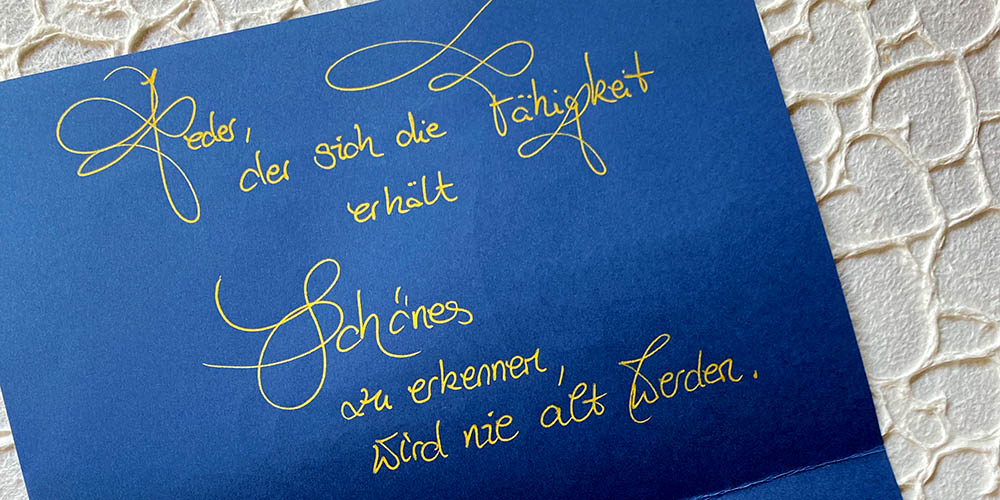 Jeder,
der sich die Fähigkeit
erhält
Schönes
zu erkennen,
wird nie alt werden.